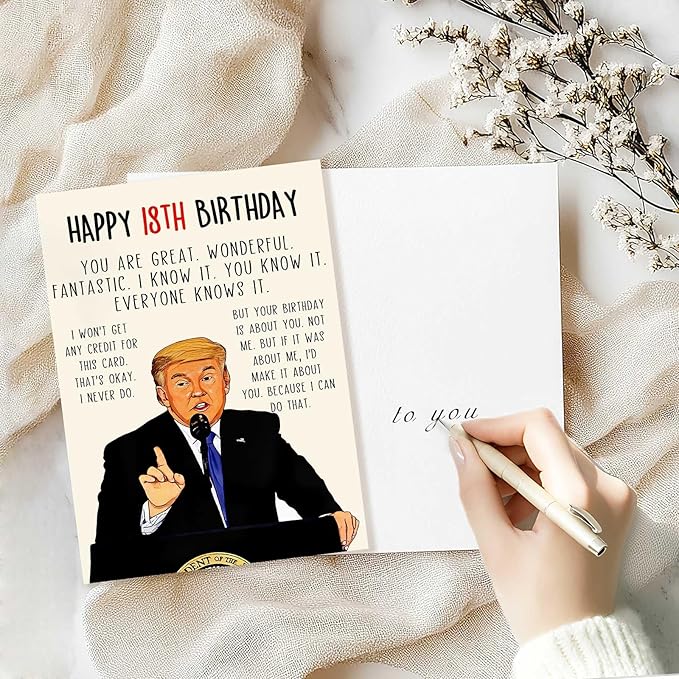 HAPPY 18TH BIRTHDAY
YOU ARE GREAT. WONDERFUL.
FANTASTIC. I KNOW IT. YOU KNOW IT.
EVERYONE KNOWS IT.
I WON'T GET
ANY CREDIT FOR
THIS CARD.
THAT'S OKAY.
I NEVER DO.
BUT YOUR BIRTHDAY
IS ABOUT YOU. NOT
ME. BUT IF IT WAS
ABOUT ME, I'D
MAKE IT ABOUT
YOU. BECAUSE I CAN
DO THAT.
DENT OF THE
to you